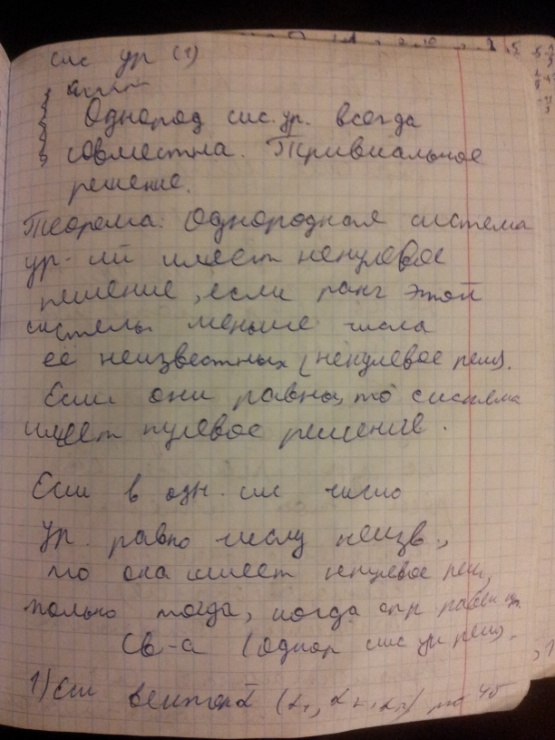 сис ур (1)
Однород сис. ур. всегда
совместна. Тривиальное
решение.
Теорема. Однородная система
ур-ий имеет ненулевое
решение, если ранг этой
системы меньше числа
её неизвестных (ненулевое реш).
Если они равны, то система
имеет нулевое решение.
Если в одн. сис число
ур. равно числу неизв.,
то она имеет ненулевое реш,
только тогда, когда опр равен
Св-а (однор сис ур реш).
1) Если вектор α (α₁, α₂,